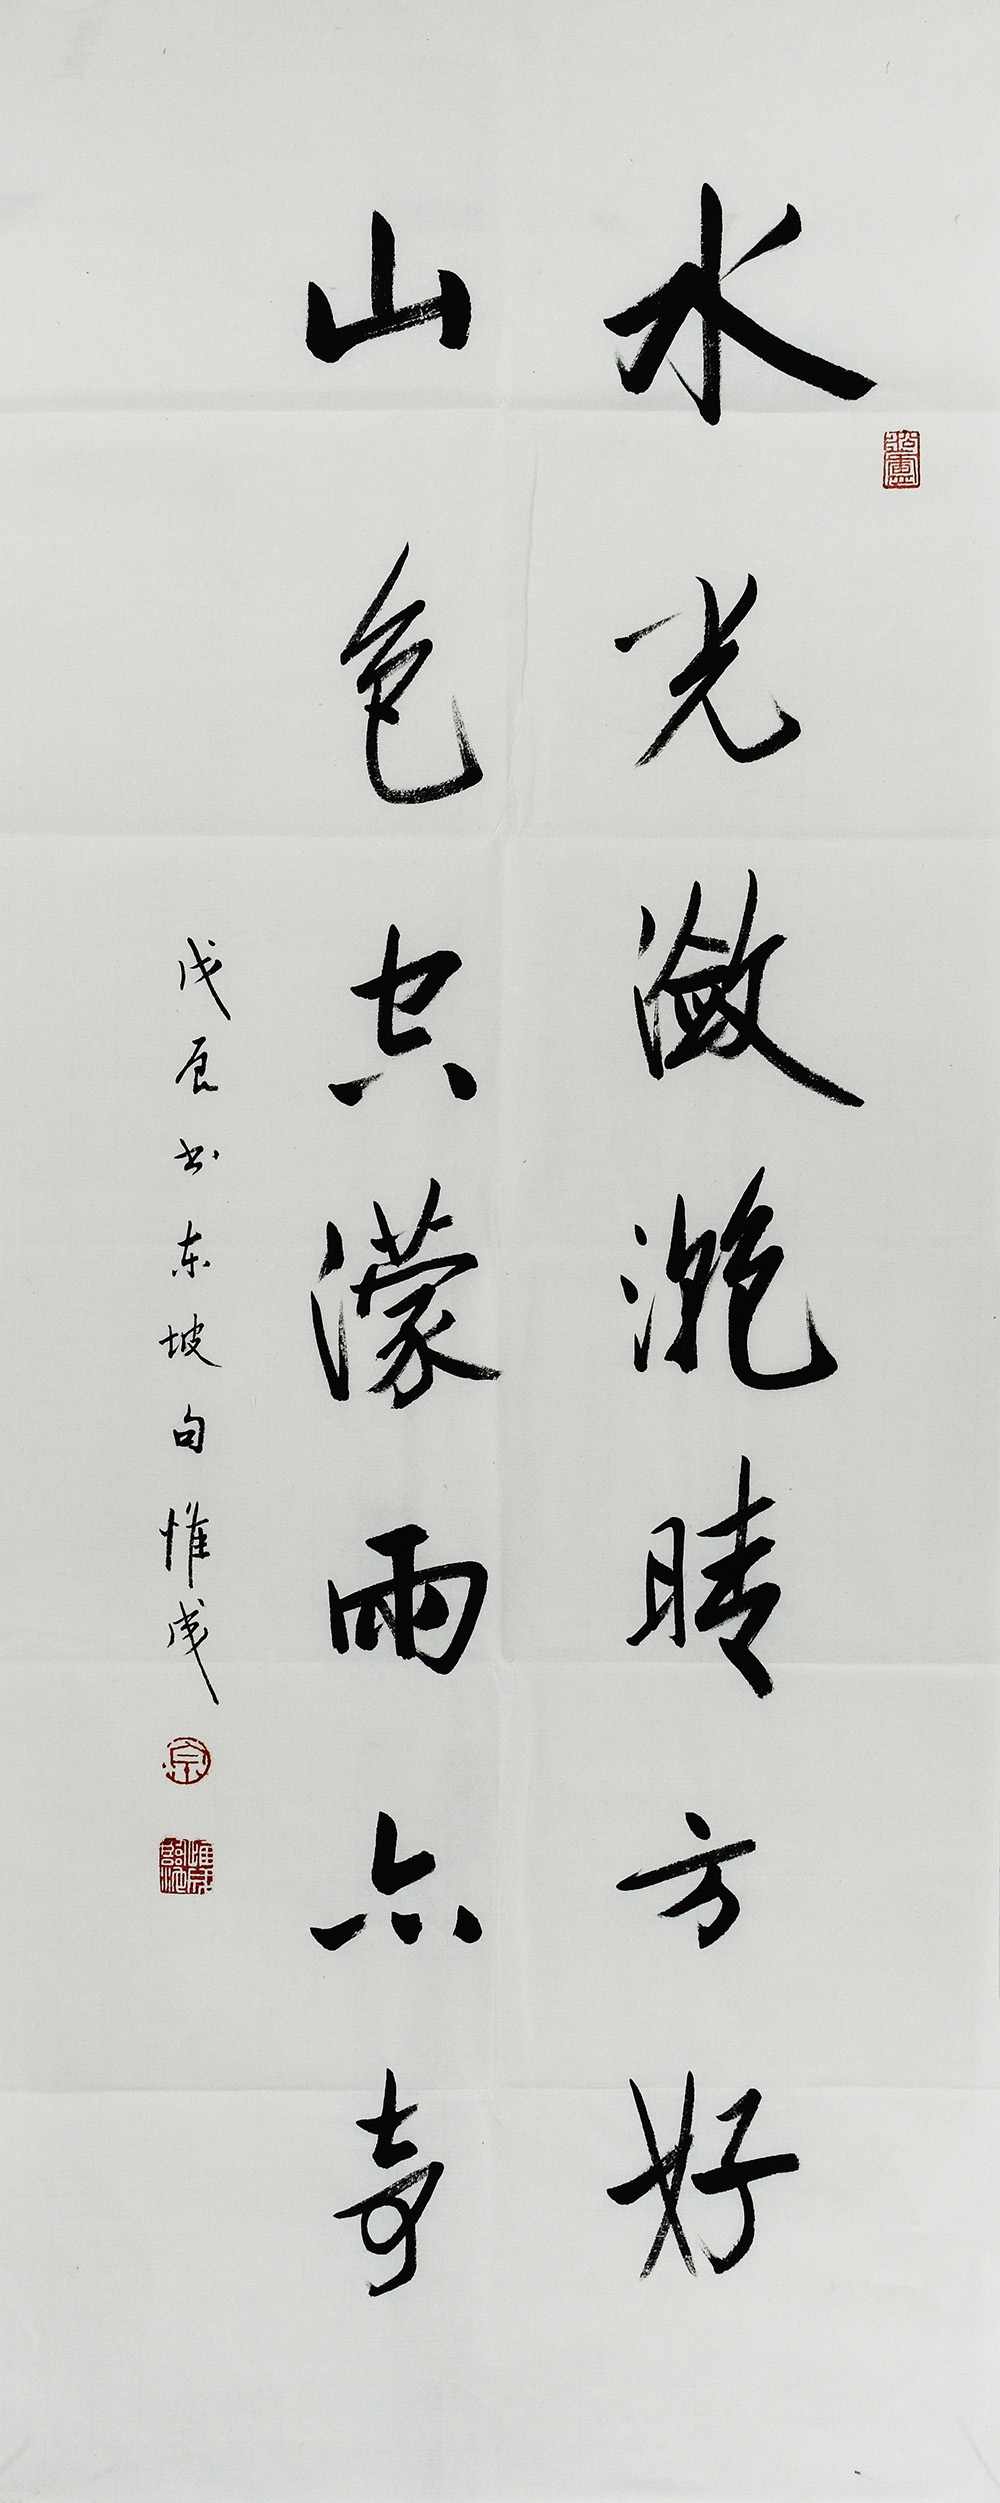 水光潋滟晴方好
山色空濛雨亦奇
戊辰书东坡句惟成